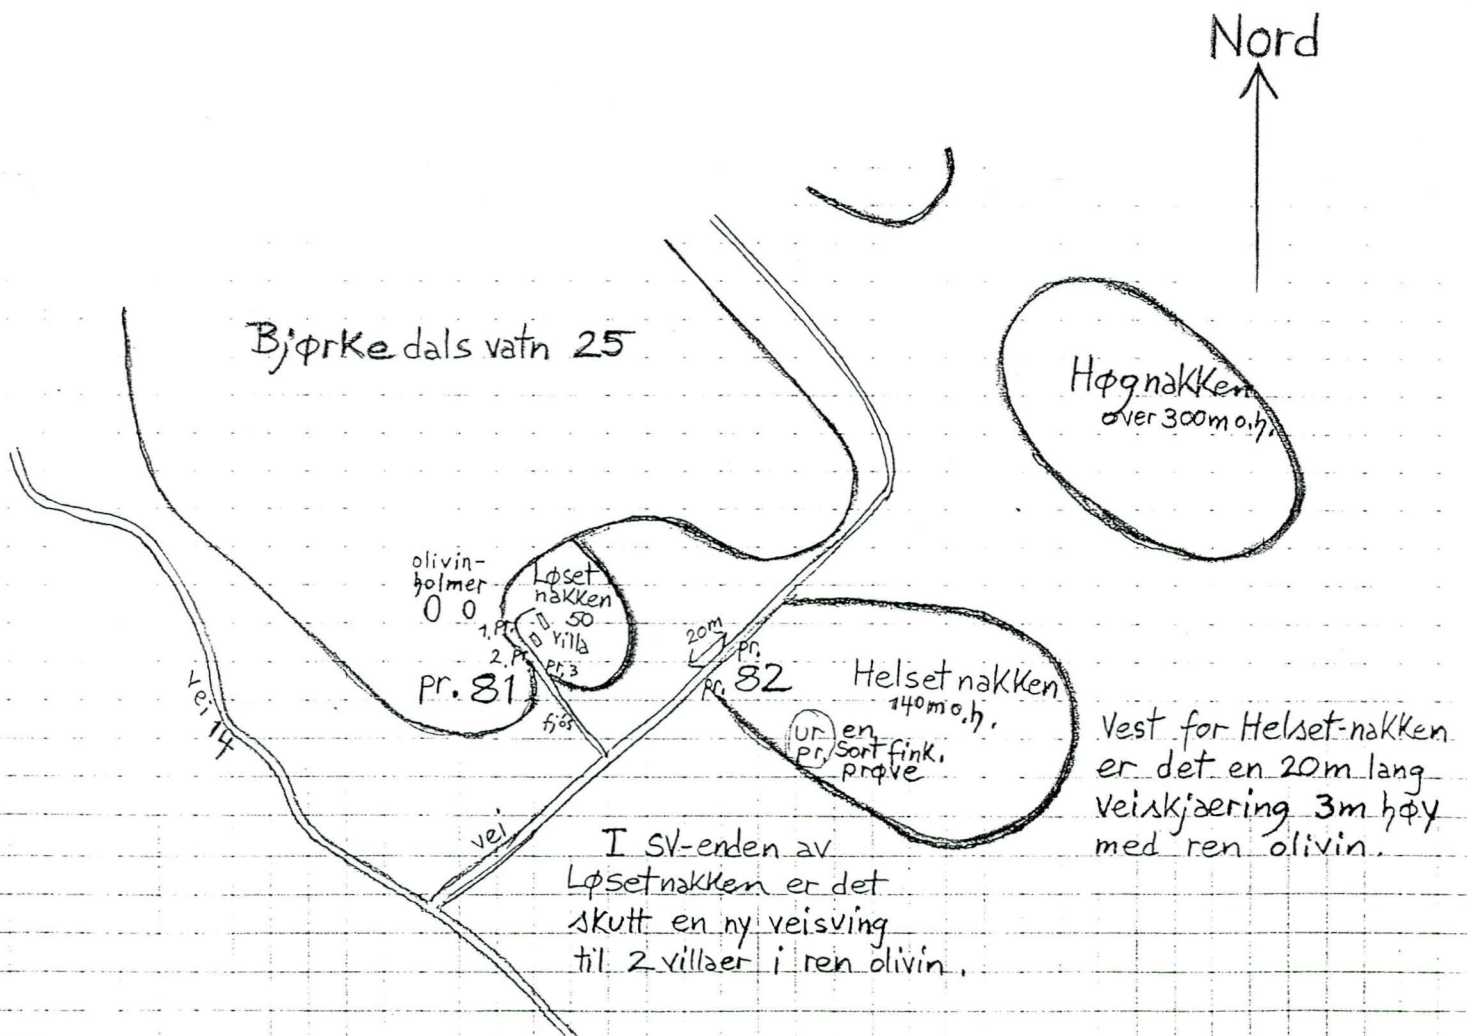 Nord
Bjørkedalsvatn 25
Høgnakken
over 300 m o.h.
olivin-
holmer
Løset
nakken
50
villa
1. pr.
2. pr.
pr. 3
pr. 81
fjøs
20m
pr.
pr. 82
Helsetnakken
140 m o.h.
ur en
pr. Sort fink.
prøve
vei 14
vei
Vest for Helset-nakken
er det en 20m lang
veiskjæring 3m høy
med ren olivin.
I SV-enden av
Løsetnakken er det
skutt en ny veisving
til 2 villaer i ren olivin.